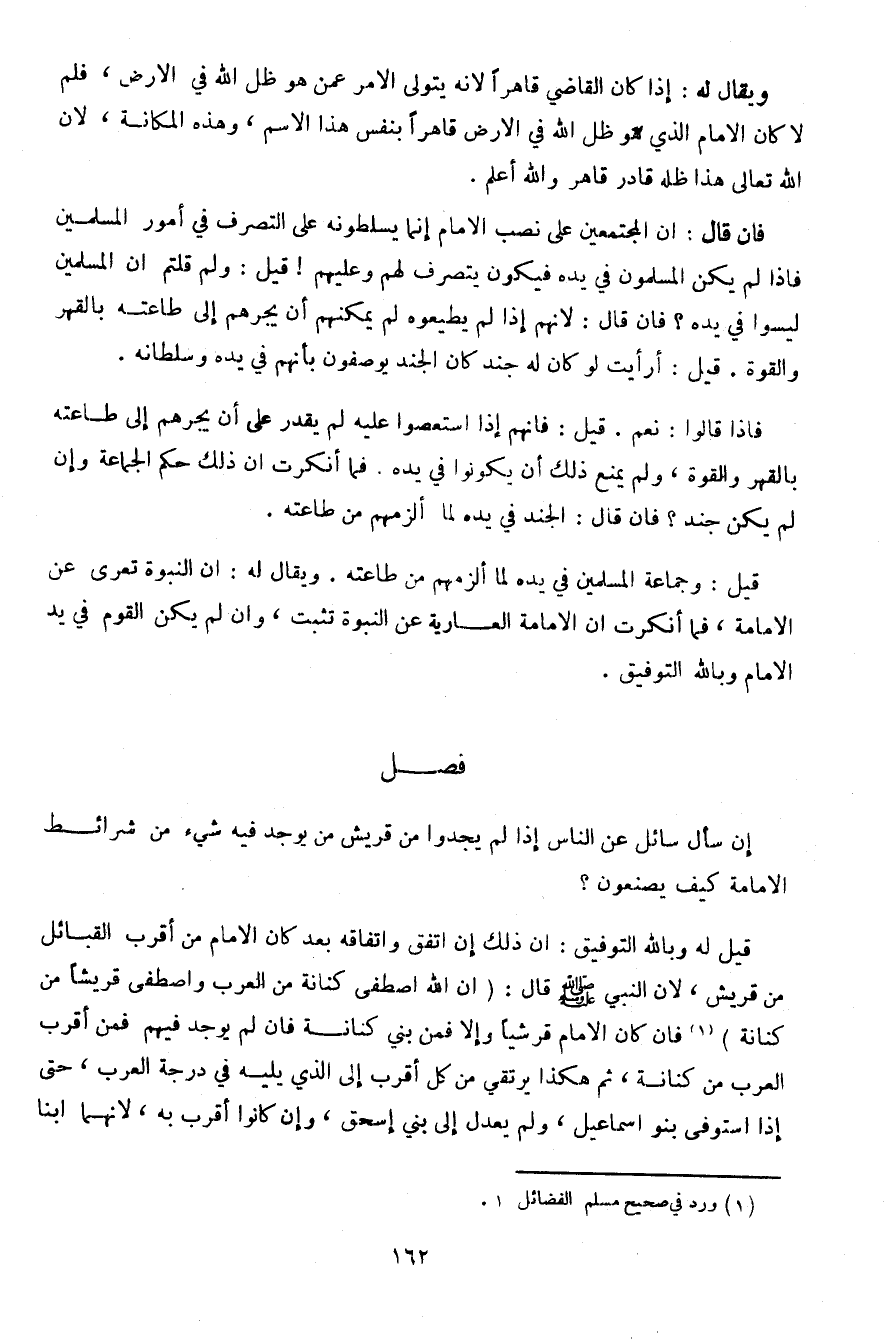 ويقال له : إذا كان القاضي قاهراً لانه يتولى الامر عمن هو ظل الله في الارض ، فلم
لا كان الامام الذي هو ظل الله في الارض قاهراً بنفس هذا الاسم ، وهذه المكانة ، لان
الله تعالى هذا ظله قادر قاهر والله أعلم .
فان قال : ان المجتمعين على نصب الامام إنما يسلطونه على التصرف في أمور المسلمين
فاذا لم يكن المسلمون في يده فيكون يتصرف لهم وعليهم ! قيل : ولم قلتم ان المسلمين
ليسوا في يده ؟ فان قال : لانهم إذا لم يطيعوه لم يمكنهم أن يجرهم إلى طاعته بالقهر
والقوة . قيل : أرأيت لو كان له جند كان الجند يوصفون بأنهم في يده وسلطانه .
فاذا قالوا : نعم . قيل : فانهم إذا استعصوا عليه لم يقدر على أن يجرهم إلى طاعته
بالقهر والقوة ، ولم يمنع ذلك أن يكونوا في يده . فما أنكرت ان ذلك حكم الجماعة وإن
لم يكن جند ؟ فان قال : الجند في يده لما ألزمهم من طاعته .
قيل : وجماعة المسلمين في يده لما ألزمهم من طاعته . ويقال له : ان النبوة تعرى عن
الامامة ، فما أنكرت ان الامامة العارية عن النبوة تثبت ، وان لم يكن القوم في يد
الامام وبالله التوفيق .
فصل
إن سأل سائل عن الناس إذا لم يجدوا من قريش من يوجد فيه شيء من شرائط
الامامة كيف يصنعون ؟
قيل له وبالله التوفيق : ان ذلك إن اتفق واتفاقه بعد كان الامام من أقرب القبائل
من قريش ، لان النبي ﷺ قال : ( ان الله اصطفى كنانة من العرب واصطفى قريشاً من
كنانة ) (١) فان كان الامام قرشياً وإلا فمن بني كنانة فان لم يوجد فيهم فمن أقرب
العرب من كنانة ، ثم هكذا يرتقي من كل أقرب إلى الذي يليه في درجة العرب ، حتى
إذا استوفى بنو اسماعيل ، ولم يعدل إلى بني إسحق ، وإن كانوا أقرب به ، لانهما ابنا
(١) ورد في صحيح مسلم الفضائل ١ .
١٦٢